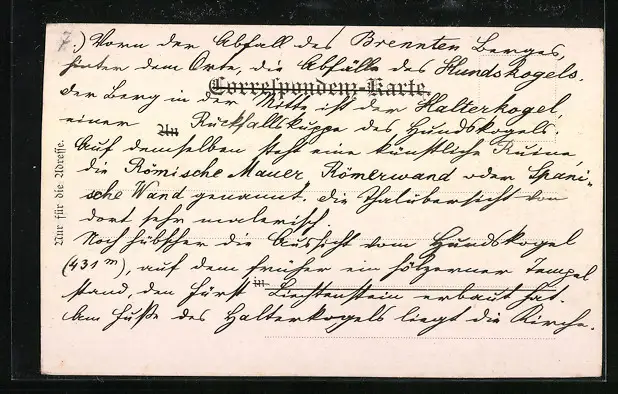 .) Vorn der Abfall des Brennten Berges,
hinter dem Orte, die Abfälle des Hundskogels.
Correspondenz-Karte.
Der Berg in der Mitte ist der Halterkogel,
einer Rückfallskuppe des Hundskogels.
An
Auf demselben steht eine künstliche Ruine,
die Römische Mauer, Römerwand oder Spani-
sche Wand genannt. Die Thalübersicht von
dort sehr malerisch
Noch hübscher die Aussicht vom Hundskogel
(431 m), auf dem früher ein hölzerner Tempel
stand, den Fürst Liechtenstein erbaut hat.
in
Am Fuße des Halterkogels liegt die Kirche.
Nur für die Adresse.